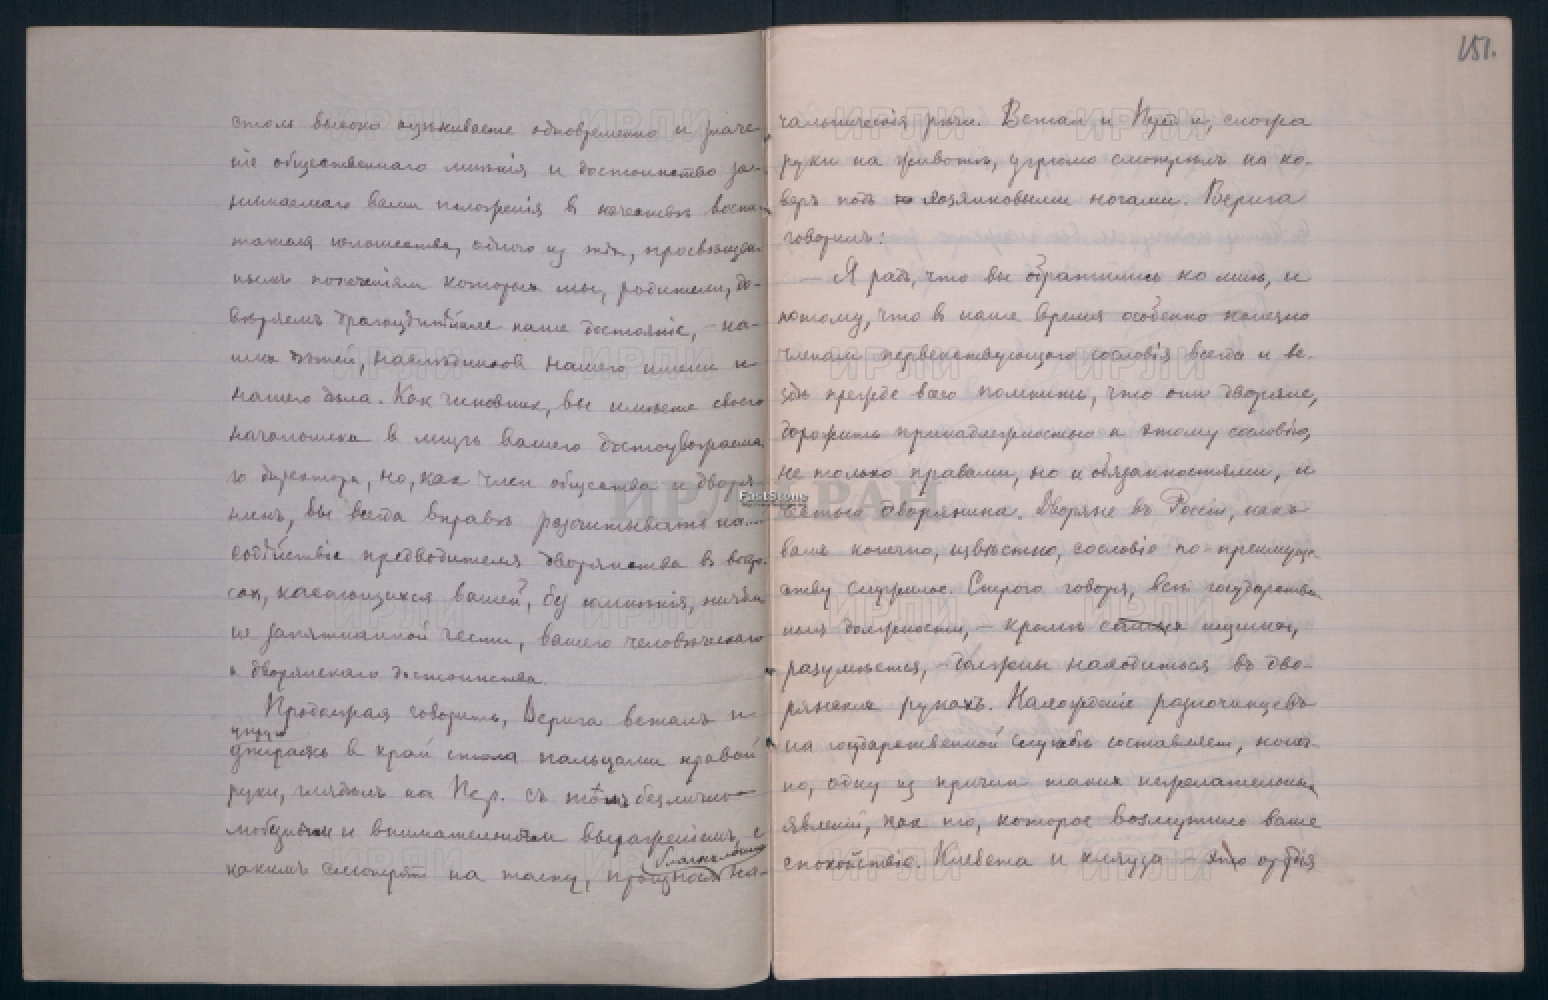 столь высоко оцениваете одновременно и значе-
ніе общественнаго мнѣнія и достоинство за-
нимаемаго вами положенія в качествѣ воспи-
тателя юношества, одного из тѣх, просвѣщен-
нымъ попеченіям которых мы, родители, до-
вѣряемъ драгоцѣннѣйшее наше достояніе, – на-
ших дѣтей, наслѣдников нашего имени и
нашего дѣла. Как чиновник, вы имѣете своего
начальника в лицѣ вашего достоуважаема-
го директора, но, как член общества и дворя-
нинъ, вы всегда вправѣ разсчитывать на....
содѣйствіе предводителя дворянства в вопро-
сах, касающихся вашей, без сомнѣнія, ничѣм
не запятнанной чести, вашего человѣческаго
и дворянскаго достоинства.
Продолжая говорить, Верига встал и
упруго
упираясь в край стола пальцами правой
руки, глядѣл на Пер. съ тѣмъ безлично-
любезным и внимательным выраженіемъ, с
благосклонно
каким смотрят на толпу, произнося на-
151.
чальническія рѣчи. Встал и Пер. и, сложа
руки на животѣ, угрюмо смотрѣлъ на ко-
веръ подъ хозяйковыми ногами. Верига
говорилъ:
– Я радъ, что вы обратились ко мнѣ, и
потому, что в наше время особенно полезно
членам первенствующаго сословія всегда и ве-
здѣ прежде всего помнить, что они дворяне,
дорожить принадлежностью к этому сословію,
не только правами, но и обязанностями, и
честью дворянина. Дворяне въ Россіи, какъ
вамъ конечно, извѣстно, сословіе по-преимуще-
ству служилое. Строго говоря, всѣ государствен-
ныя должности, – кромѣ самых низших,
разумѣется, – должны находиться въ дво-
рянских рукахъ. Нахожденіе разночинцевъ
на государственной службѣ составляет, конеч-
но, одну из причин таких нежелательных
явленій, как то, которое возмутило ваше
спокойствіе. Клевета и кляуза – это орудія
ИРЛИ РАН
FastStone